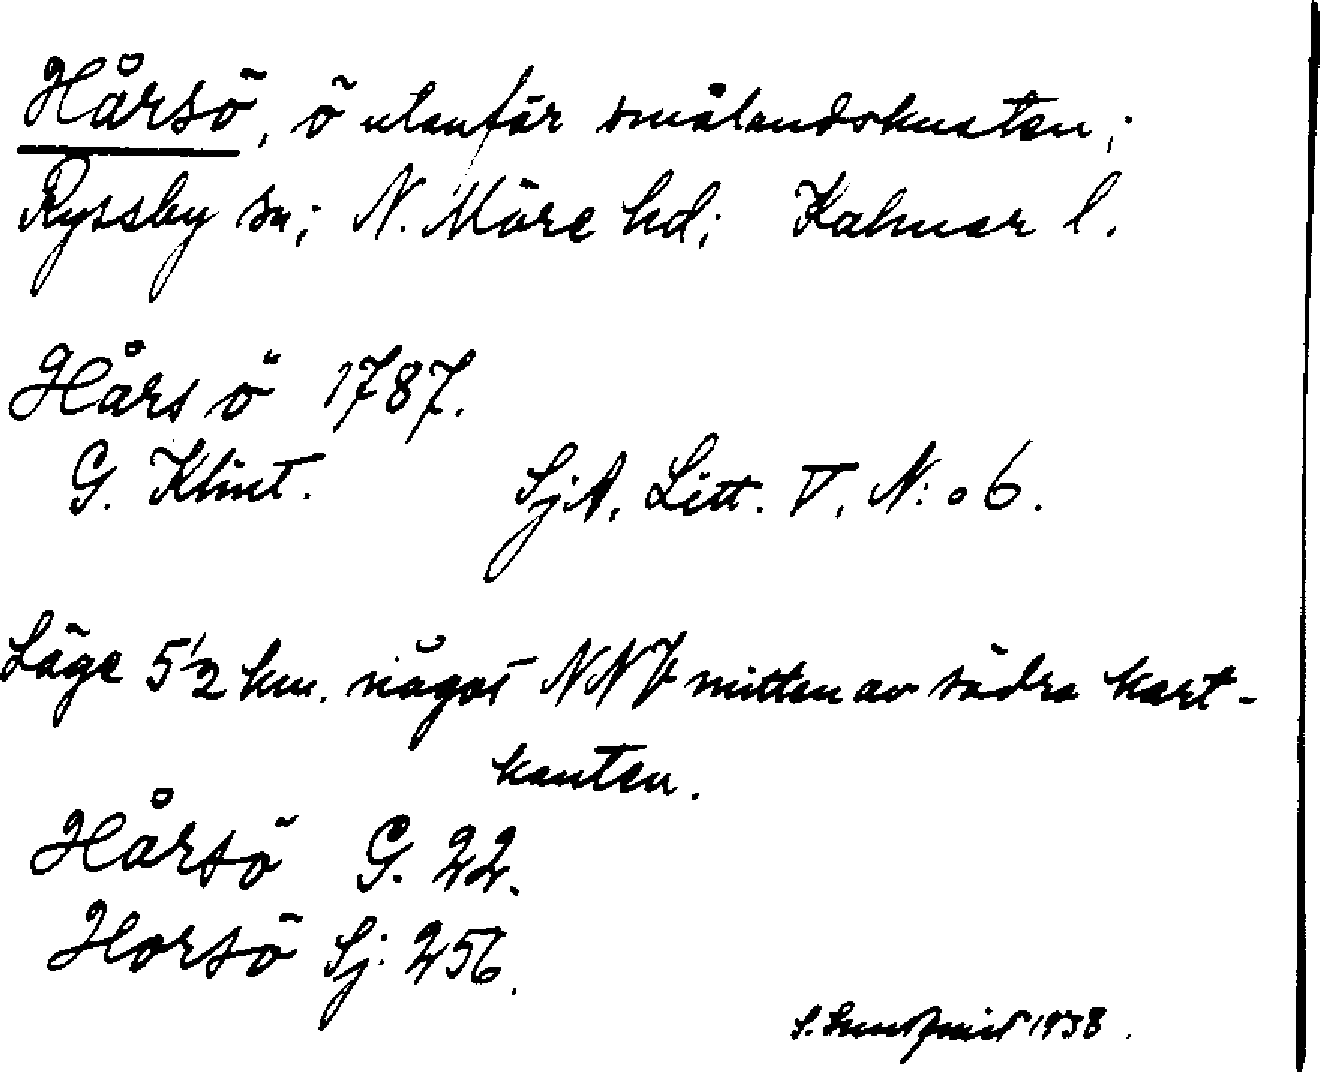 Hårsö, ö utanför smålandskusten;
Ryssby sn; N. Möre hd; Kalmar l.
Hårs ö 1787.
G. Klint. SjA, Litt. V, N:o 6.
Läge 5 1/2 km. något NNV mitten av södra kart-
kanten.
Hårsö G. 22.
Horsö Sj: 256.
S. 1938.